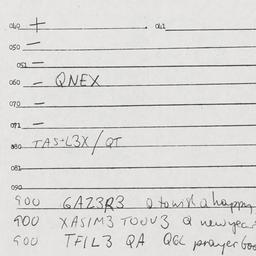 040 + . 041
050 —
051 —
060 — QNEX
070 —
071 —
080 TAS-L3X/QT
081
090
900 GAZ3R3 Q to wish a happy
900 XASIM3 TOVV3 Q new year
900 TFIL3 QA QGL prayer boo